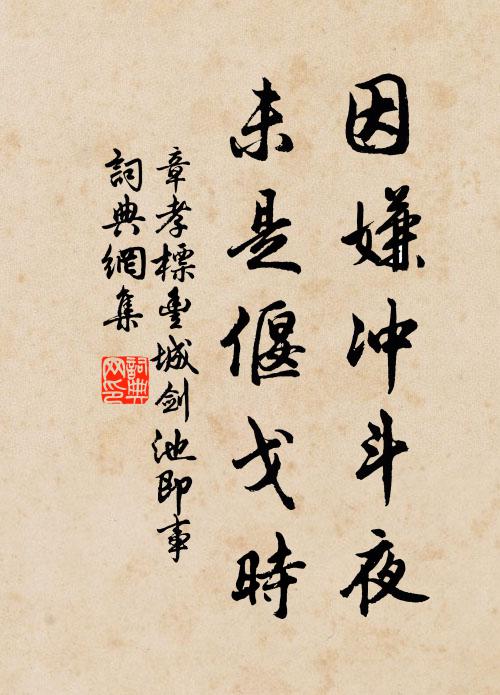 因嫌冲斗夜
未是偃戈時
章孝標豐城劍池即事
詞典網集
詞典
网印